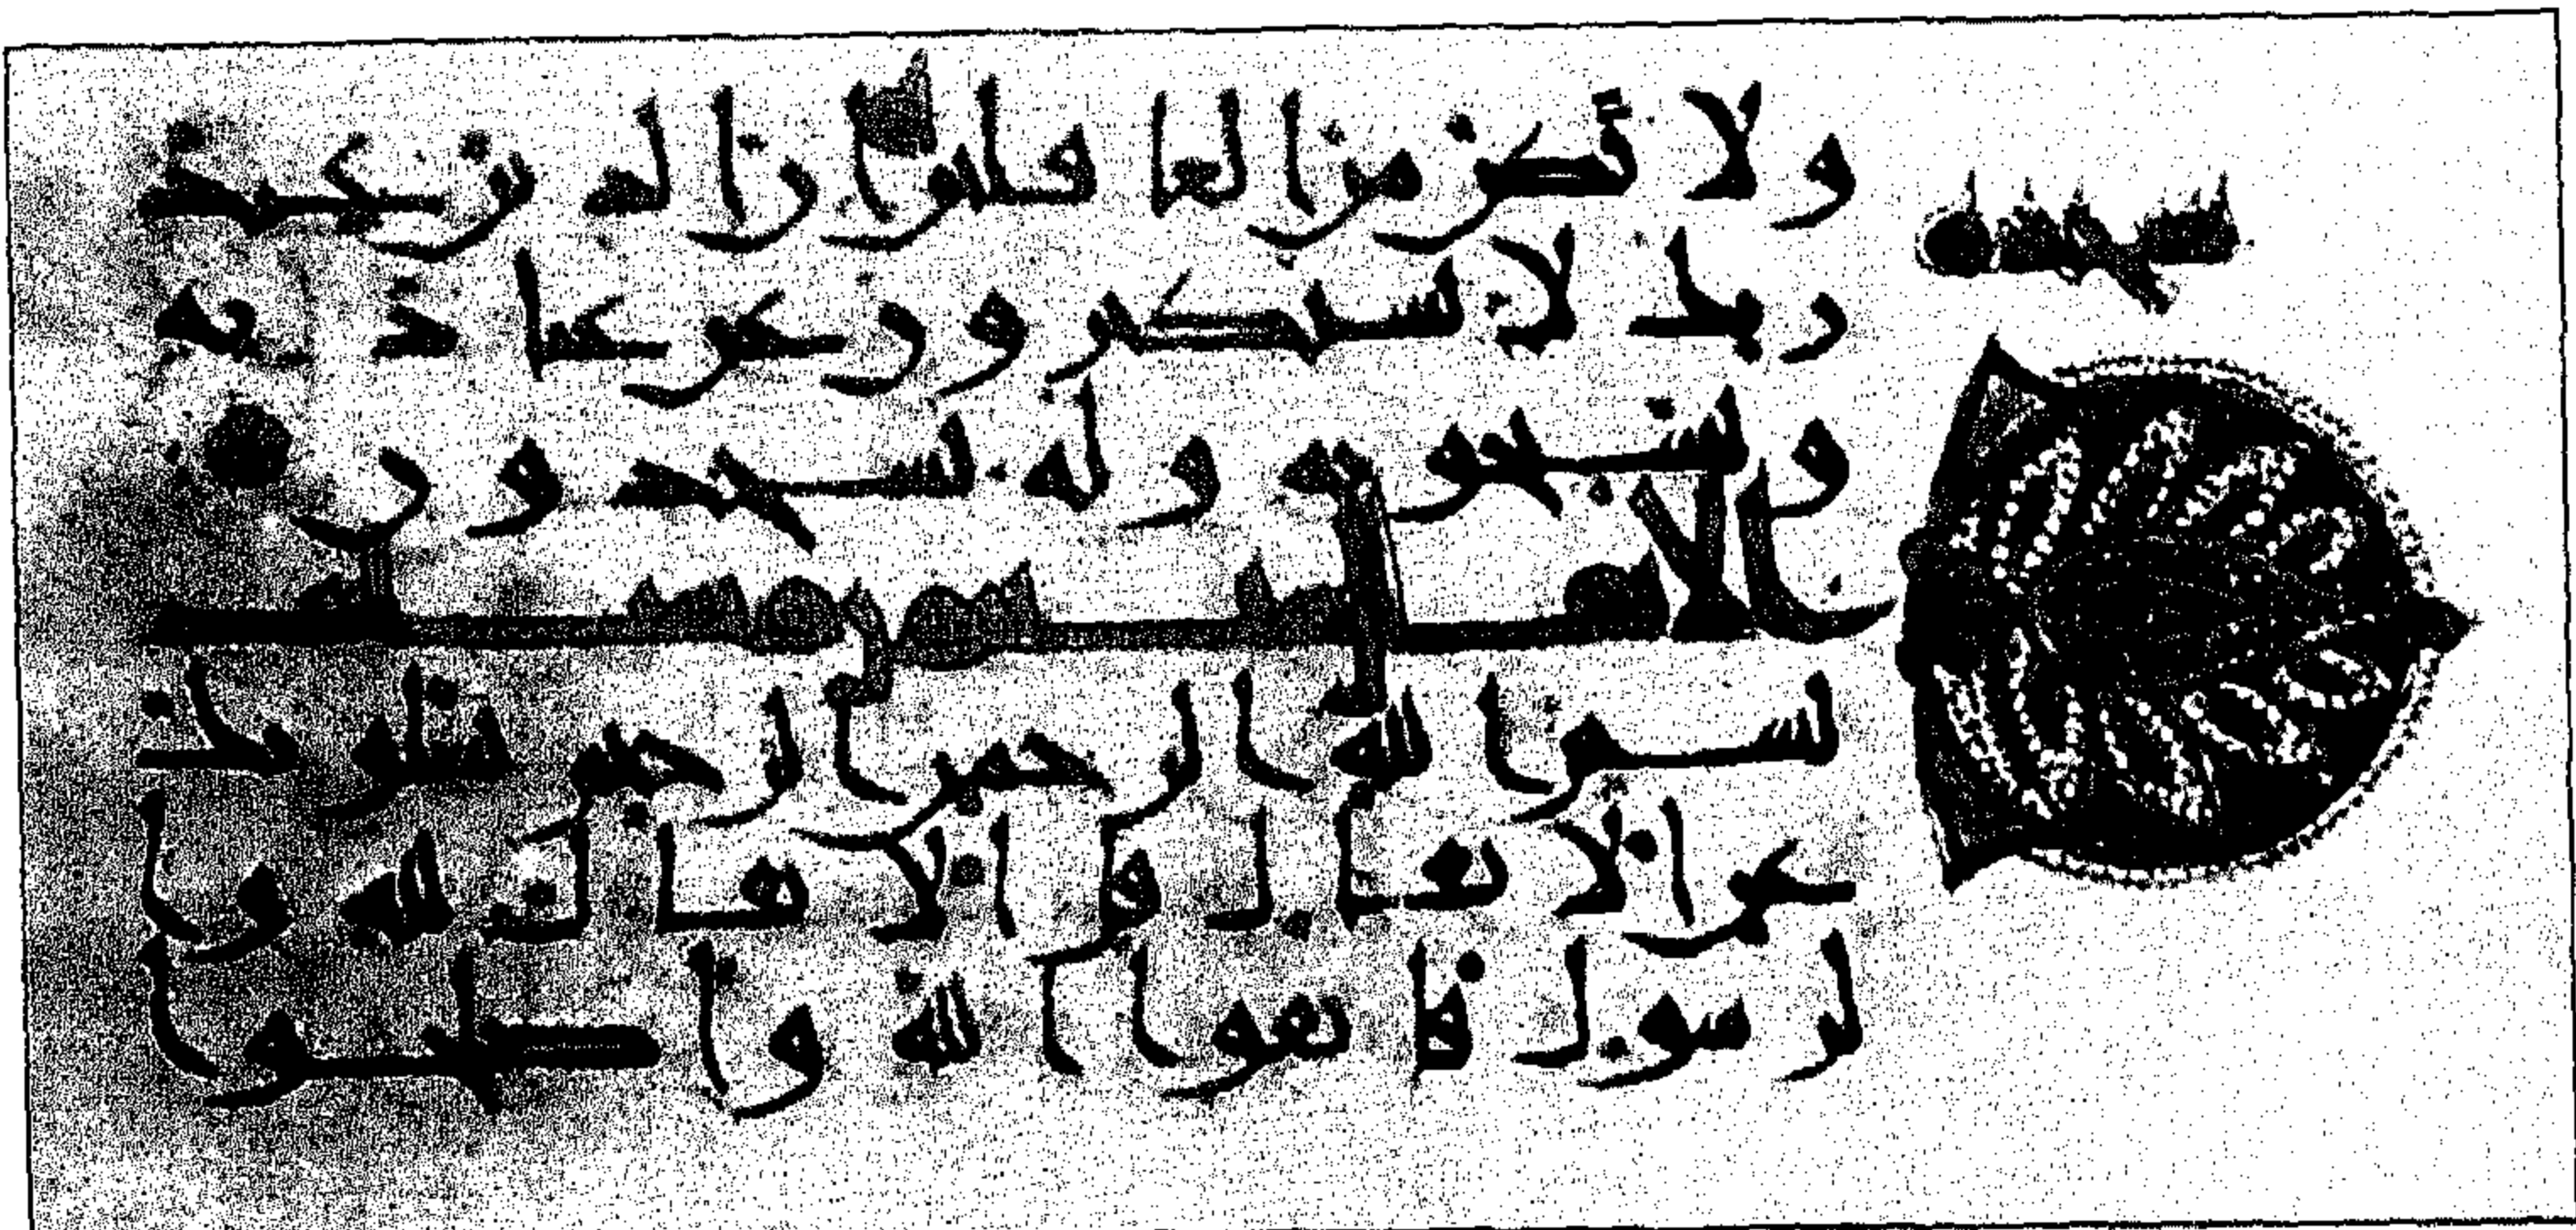 ولا تكن من الغا فلين ان الذين عند
ربك لا يستكبرون عن عبا د ته
ويسبحونه وله يسجدون
الانفال
بسم الله الرحمن الرحيم يسلونك
عن الانفال قل الانفال لله وا
لرسول فاتقوا الله وا صلحوا